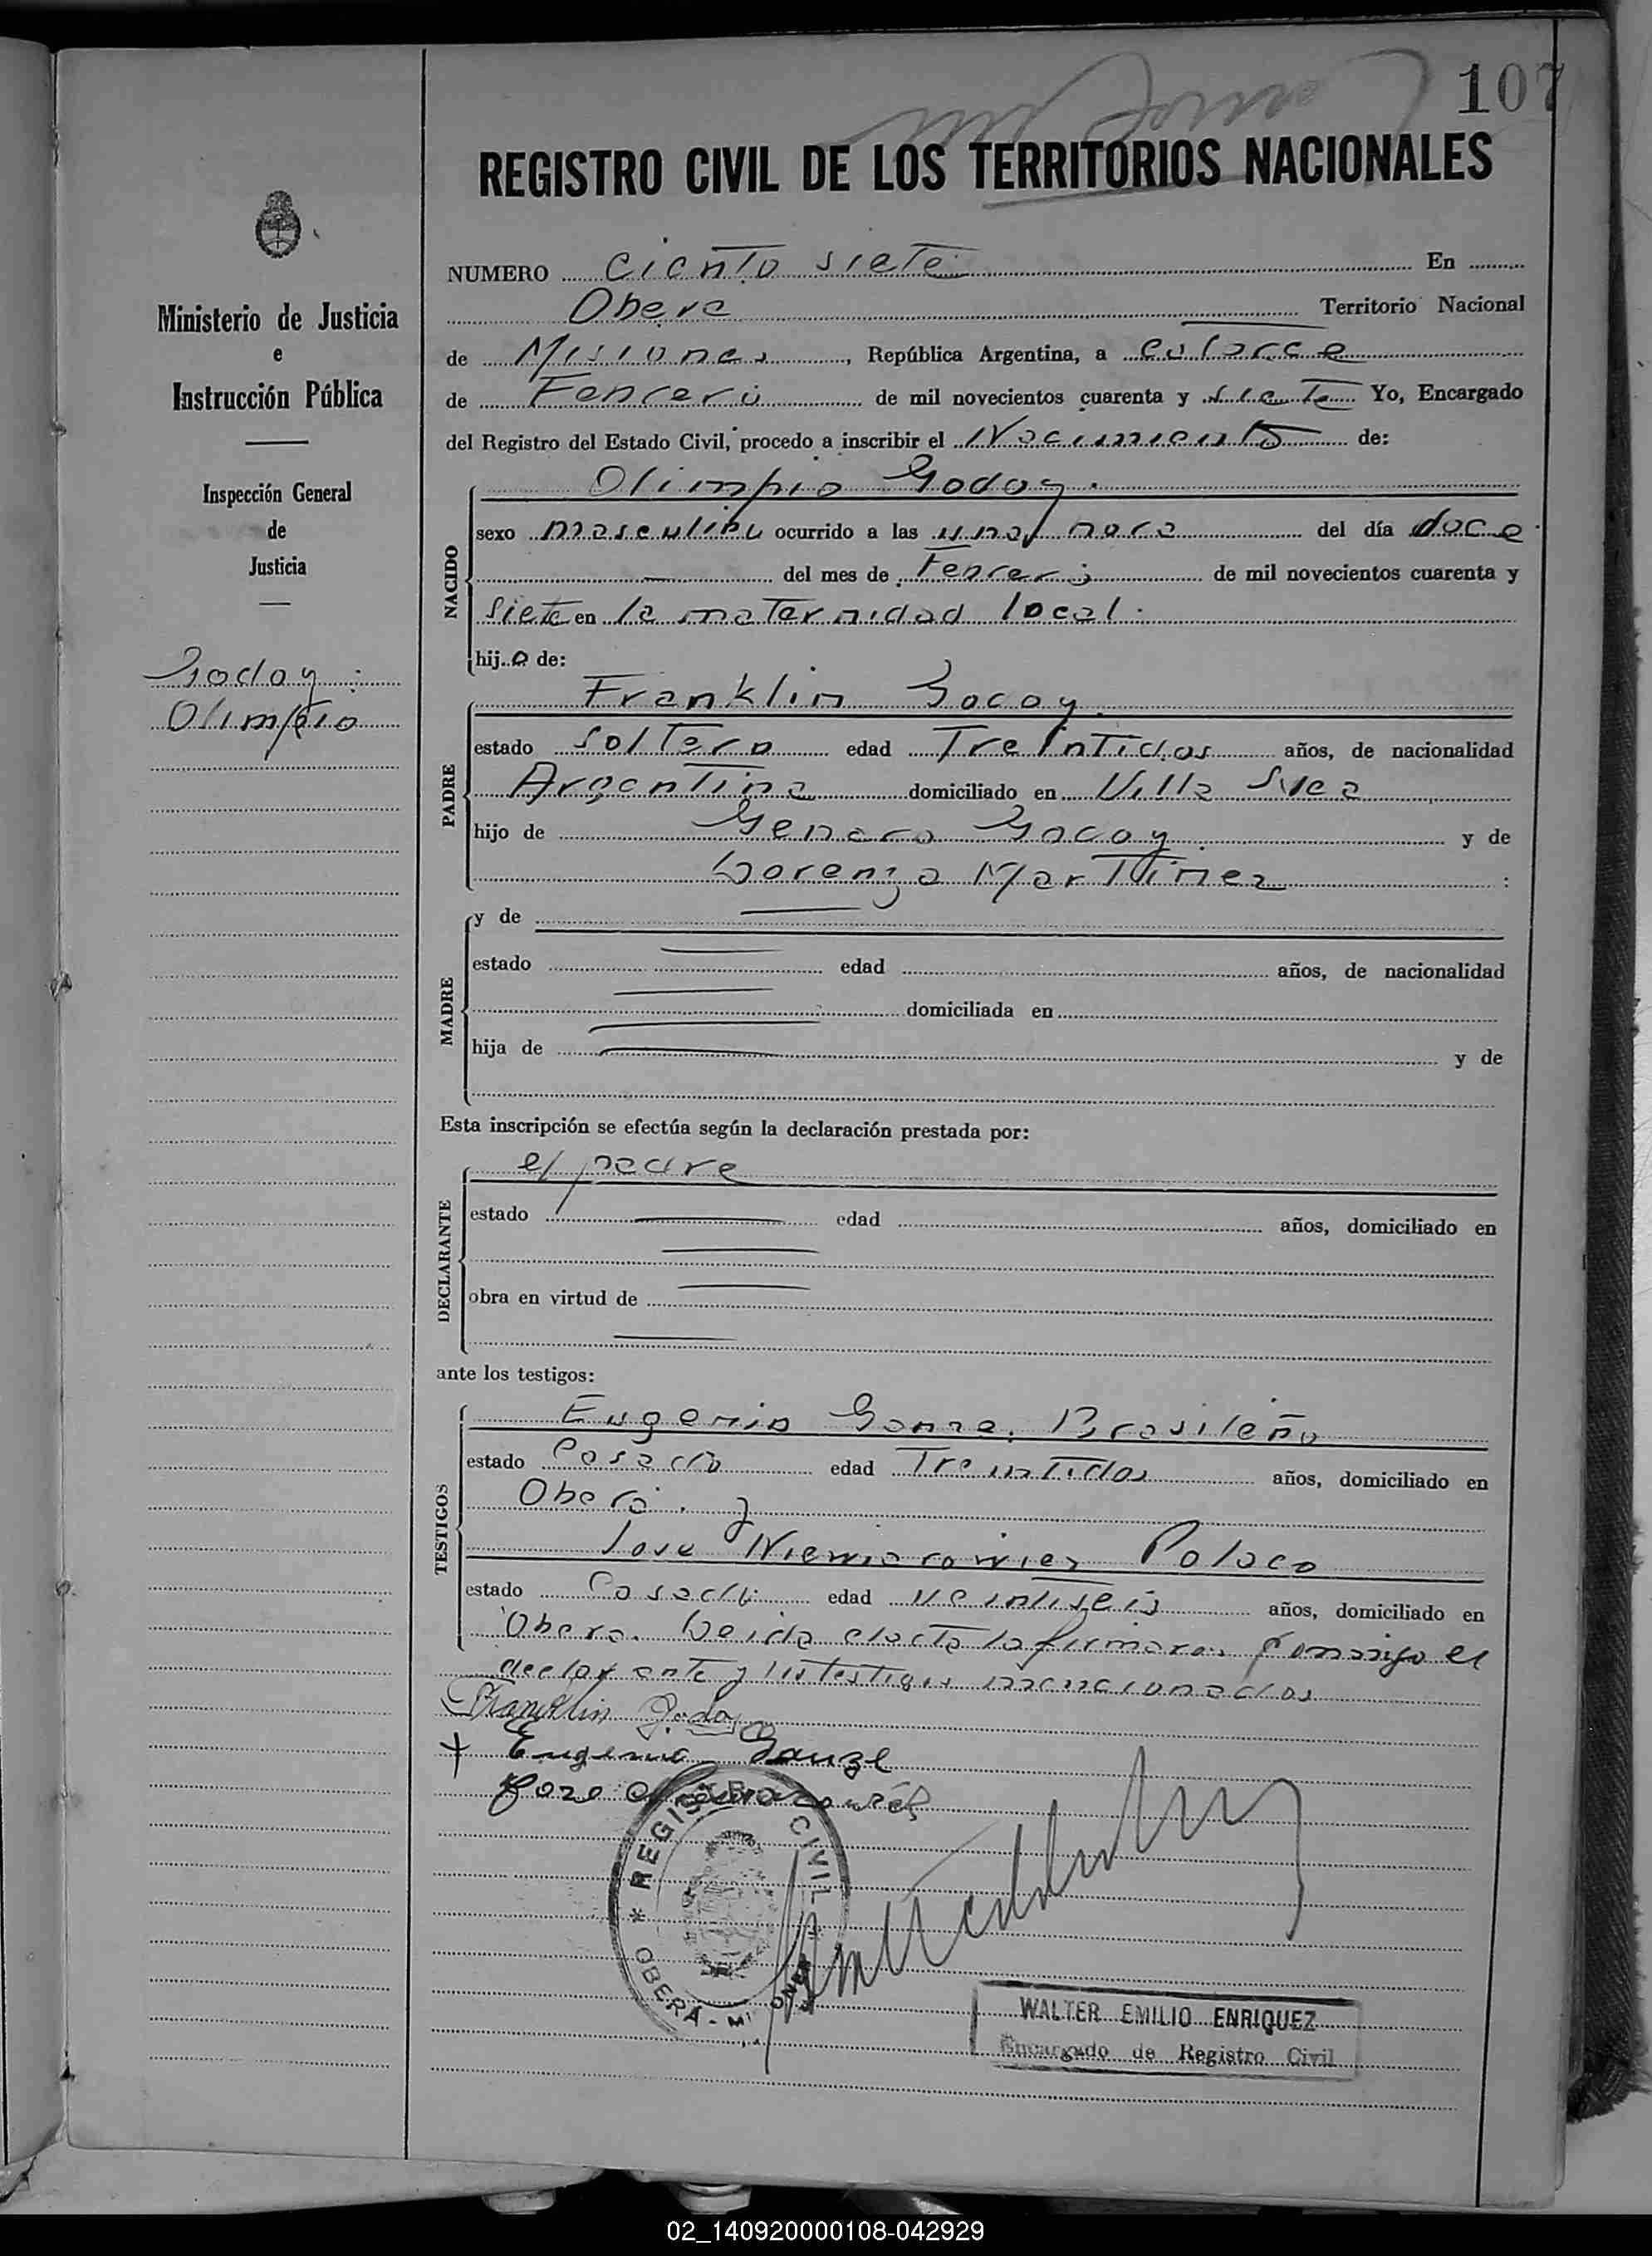 107
REGISTRO CIVIL DE LOS TERRITORIOS NACIONALES
Ministerio de Justicia
e
Instrucción Pública
Inspección General
de
Justicia
Godoy
Olimpio
NUMERO Ciento siete En
Obera Territorio Nacional
de Misiones, República Argentina, a catorce
de Febrero de mil novecientos cuarenta y siete Yo, Encargado
del Registro del Estado Civil, procedo a inscribir el Nacimiento de:
NACIDO
Olimpio Godoy.
sexo masculino ocurrido a las una hora del día doce
del mes de Febrero de mil novecientos cuarenta y
siete en la maternidad local.
hijo de:
PADRE
Franklin Godoy
estado soltero edad Treintidos años, de nacionalidad
Argentina domiciliado en Villa Svea
hijo de Genaro Godoy y de
Lorenza Martinez
MADRE
y de
estado edad años, de nacionalidad
domiciliada en
hija de y de
Esta inscripción se efectúa según la declaración prestada por:
DECLARANTE
el padre
estado edad años, domiciliado en
obra en virtud de
ante los testigos:
TESTIGOS
Eugenio Brasileño
estado Casado edad Treintidos años, domiciliado en
Obera. y
Jose Polaco
estado Casado edad veintiseis años, domiciliado en
Obera. Leida el acta la firmaron conmigo el
declarante y los testigos mencionados
Franklin Godoy
Eugenio
Jose
* REGISTRO CIVIL *
OBERÁ - MISIONES
WALTER EMILIO ENRIQUEZ
Encargado de Registro Civil
02_140920000108-042929